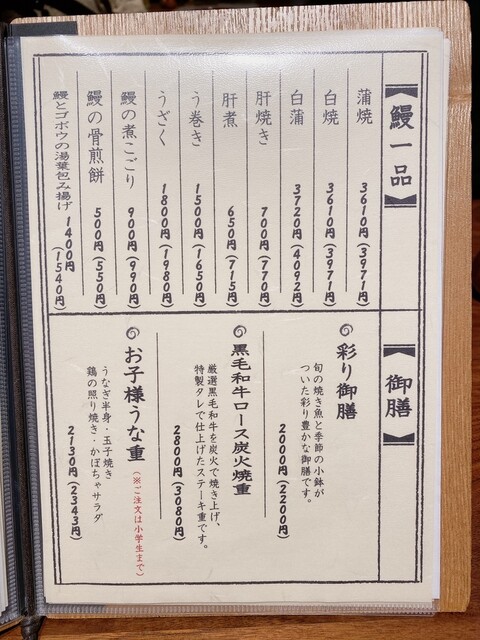 【鰻一品】
蒲焼 3610円(3971円)
白焼 3610円(3971円)
白蒲 3720円(4092円)
肝焼き 700円(770円)
肝煮 650円(715円)
う巻き 1500円(1650円)
うざく 1800円(1980円)
鰻の煮こごり 900円(990円)
鰻の骨煎餅 500円(550円)
鰻とゴボウの湯葉包み揚げ 1400円(1540円)
【御膳】
彩り御膳
旬の焼き魚と季節の小鉢が
ついた彩り豊かな御膳です。
2000円(2200円)
黒毛和牛ロース炭火焼重
厳選黒毛和牛を炭火で焼き上げ、
特製タレで仕上げたステーキ重です。
2800円(3080円)
お子様うな重
(※ご注文は小学生まで)
うなぎ半身・玉子焼き
鶏の照り焼き・かぼちゃサラダ
2130円(2343円)